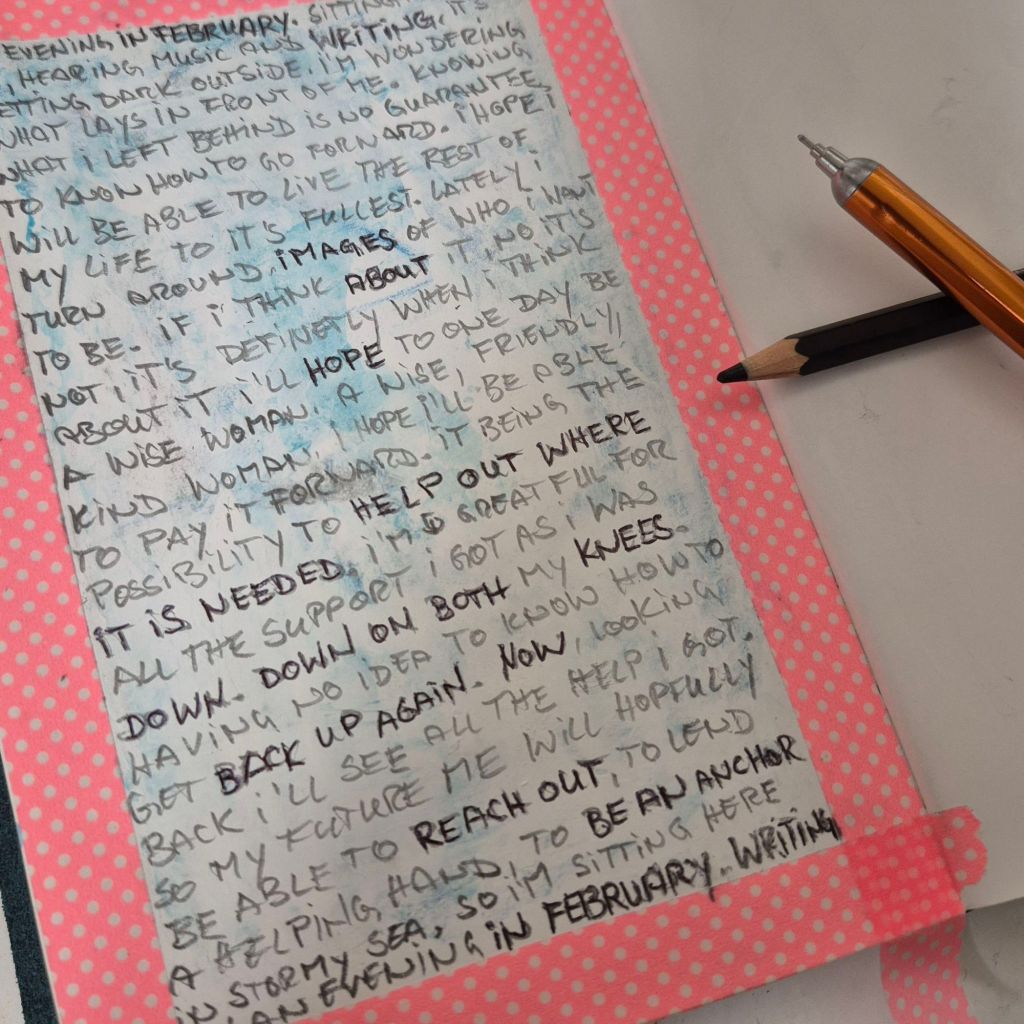 EVENING IN FEBRUARY. SITTING
HEARING MUSIC AND WRITING. IT'S
ETTING DARK OUTSIDE. I'M WONDERING
WHAT LAYS IN FRONT OF ME. KNOWING
WHAT I LEFT BEHIND IS NO GUARANTEE,
TO KNOW HOW TO GO FORWARD. I HOPE I
WILL BE ABLE TO LIVE THE REST OF
MY LIFE TO IT'S FULLEST. LATELY, I
TURN AROUND, IMAGES OF WHO I WANT
TO BE. IF I THINK ABOUT IT, NO IT'S
NOT, IT'S DEFINETLY WHEN I THINK
ABOUT IT I'LL HOPE TO ONE DAY BE
A WISE WOMAN. A WISE, FRIENDLY,
KIND WOMAN. I HOPE I'LL BE ABLE,
TO PAY IT FORWARD. IT BEING THE
POSSIBILITY TO HELP OUT WHERE
IT IS NEEDED. I'M GREATFUL FOR
ALL THE SUPPORT I GOT AS I WAS
DOWN. DOWN ON BOTH MY KNEES.
HAVING NO IDEA TO KNOW HOW TO
GET BACK UP AGAIN. NOW, LOOKING
BACK I'LL SEE ALL THE HELP I GOT.
SO MY FUTURE ME WILL HOPFULLY
BE ABLE TO REACH OUT, TO LEND
A HELPING HAND. TO BE AN ANCHOR
IN STORMY SEA. SO I'M SITTING HERE
IN AN EVENING IN FEBRUARY. WRITING